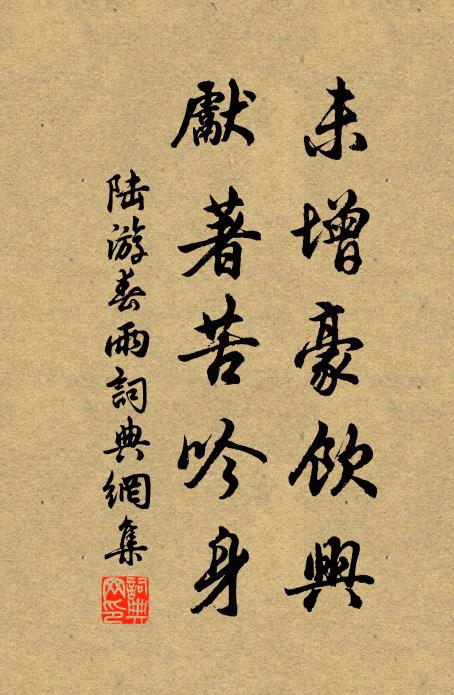 未增豪飲興
獻著苦吟身
陆游春雨詞典網集
詞典網印